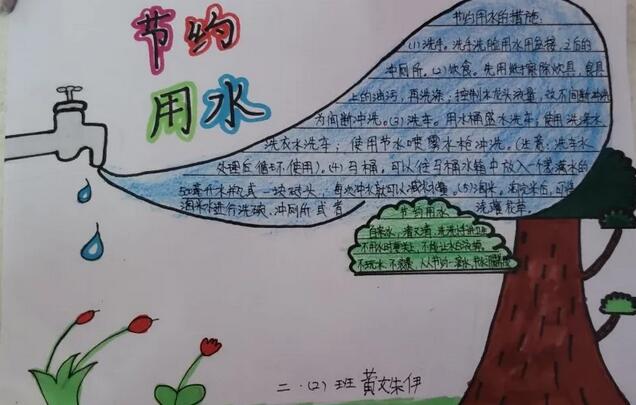 节约
用水
节约用水的措施:
(1)洗手。洗手洗脸用水用盆接,之后的
冲厕所。(2)饮食。先用纸擦除炊具、食具
上的油污,再洗涤;控制水龙头流量,改不间断冲洗
为间断冲洗。(3)洗车。用水桶盛水洗车,使用洗涤水
洗衣水洗车;使用节水喷雾水枪冲洗。(注意:洗车水
处理后循环使用)。(4)马桶。可以往马桶水箱中放入一个装满水的
水瓶或一块砖头,每次冲水就可以减少水量。(5)淘米。
淘米水进行洗碗、冲厕所或者浇灌花草。
节约用水
自来水,清又清,洗洗
不用水时要关上,不能让水白流淌。
不玩水,不浪费,人人节约一滴水,
二.(2)班 黄文朱伊